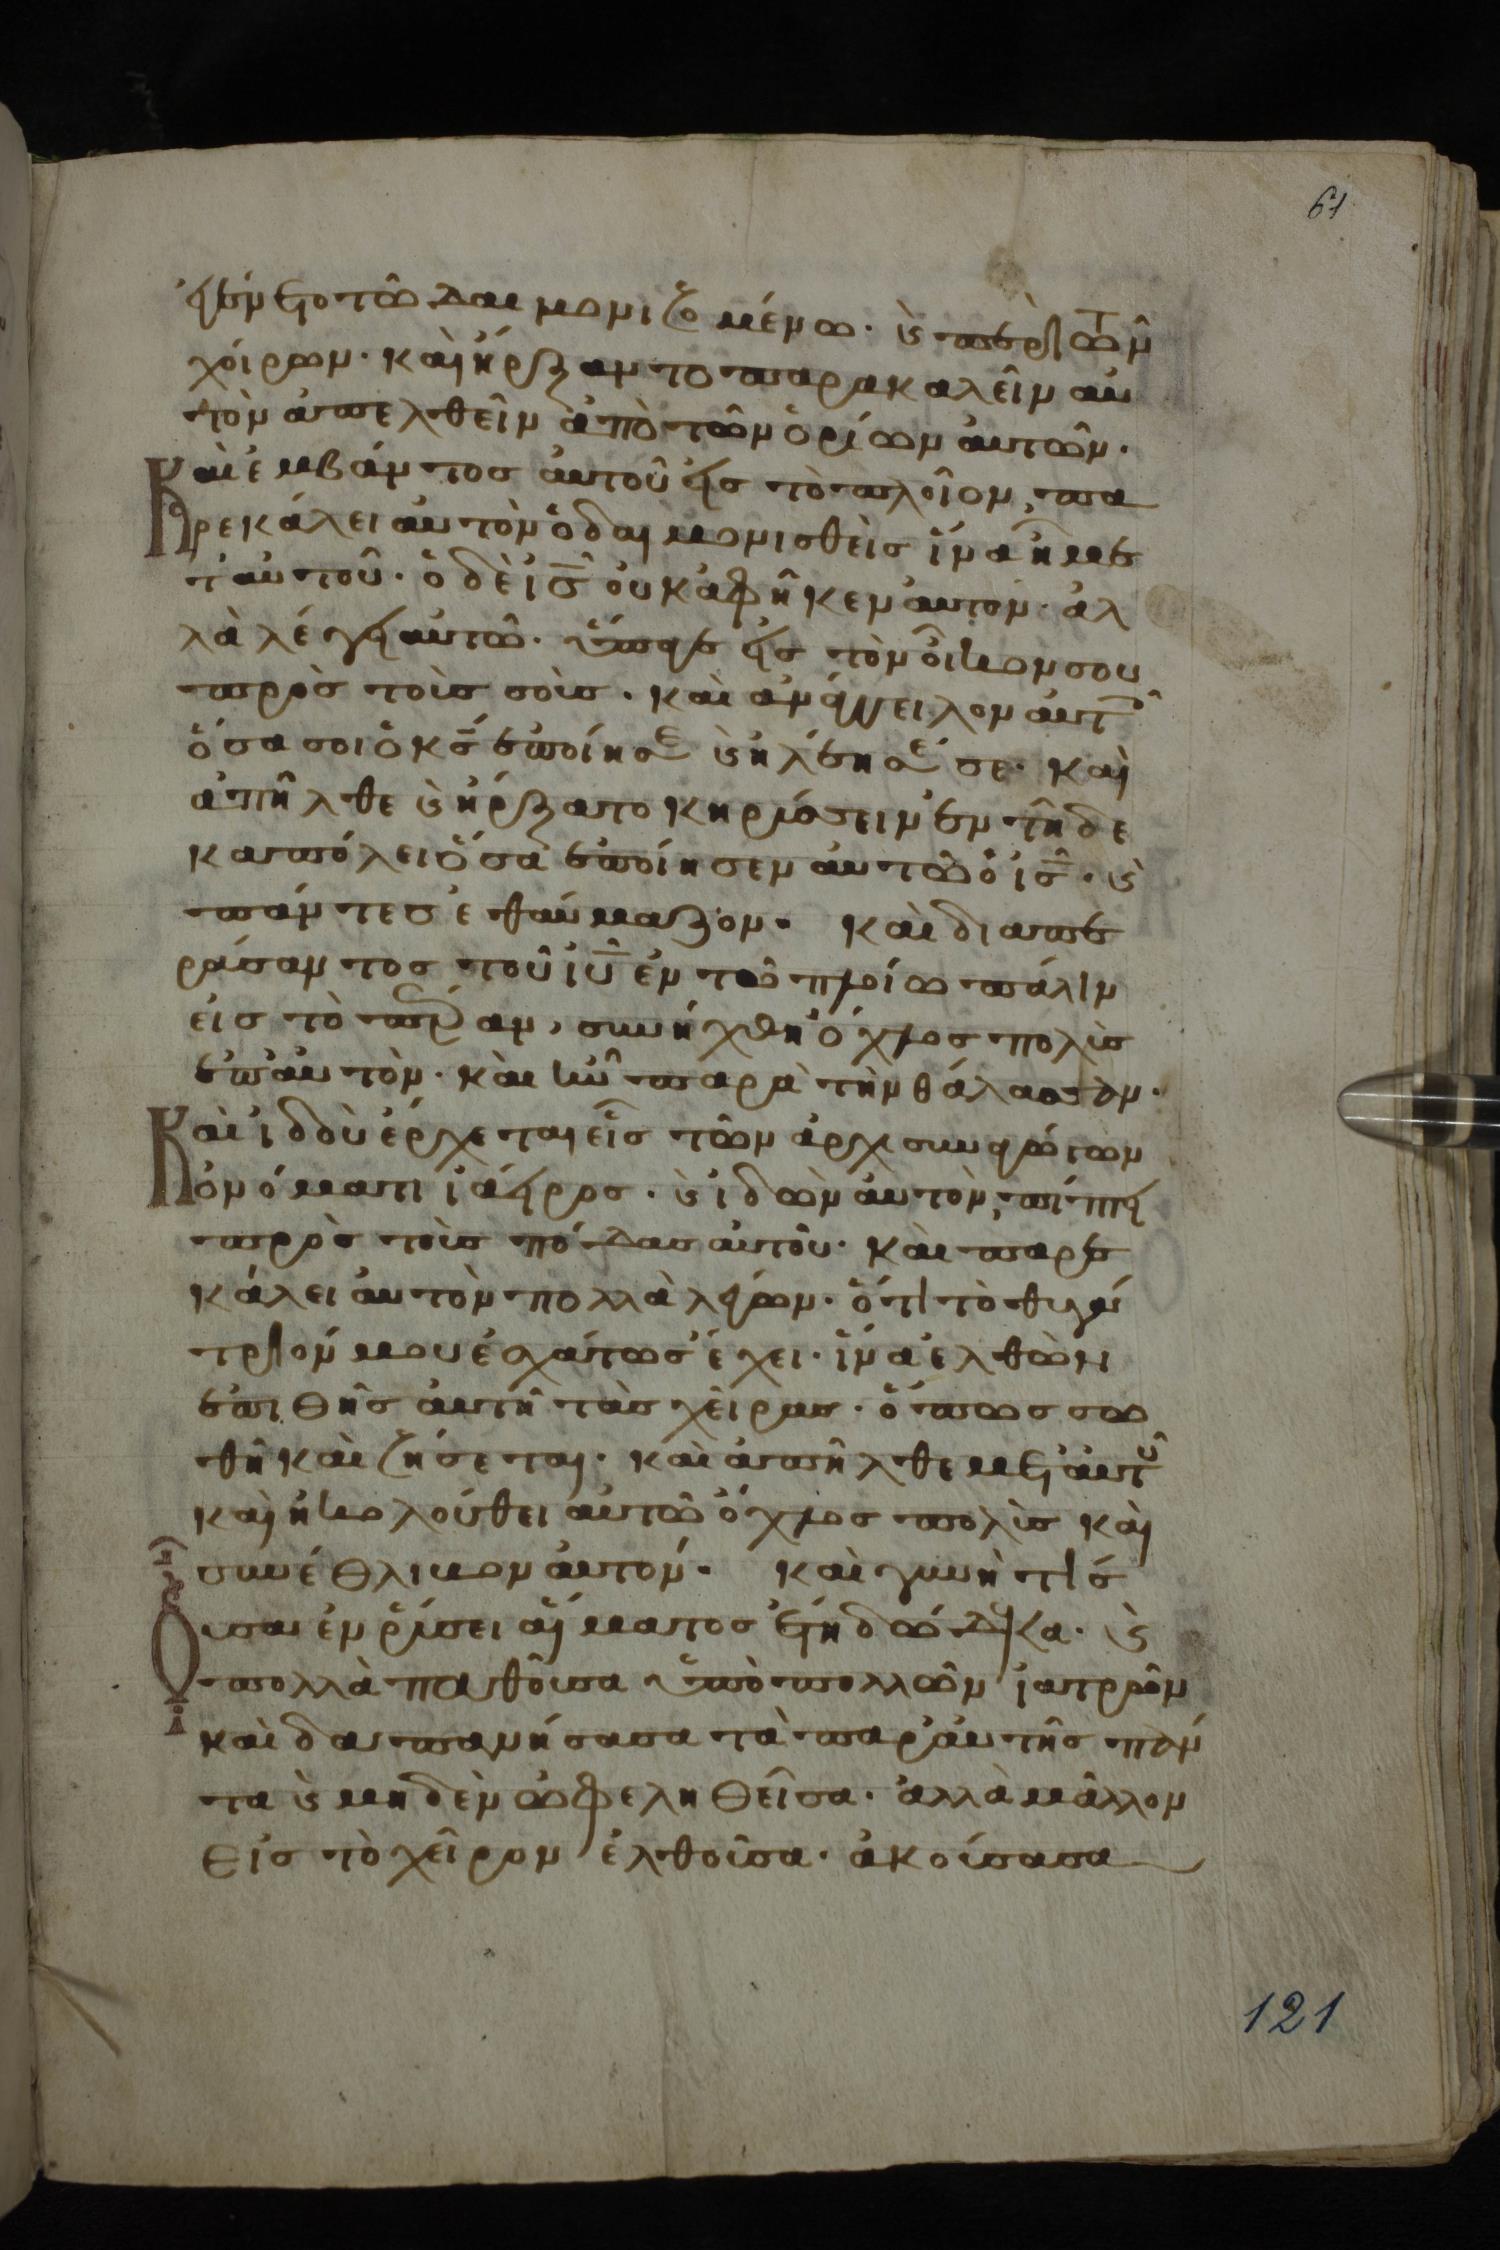 61
ἐγένετο τῶ δαιμονιζομένω. καὶ περὶ τῶν
χοίρων. καὶ ἤρξαντο παρακαλεῖν αυ
τὸν ἀπελθεῖν ἀπὸ τῶν ὁρίων ἀυτῶν.
Καὶ ἐμβάντος ἀυτοῦ εἰς τὸ πλοῖον, πα
ρεκάλει αυτὸν ὁ δαιμονισθεὶς ἵνα ἦ με
τ' αυτοῦ. ὁ δὲ ις ουκ ἀφῆκεν ἀυτον. ἀλ
λὰ λέγει αυτῶ. ὕπαγε εἰς τὸν οἶκον σου
πρὸς τοὺς σοὺς. καὶ ἀνάγγειλον ἀυτοῖς
ὅσα σοι ὁ κς ἐποίησε καὶ ἠλέησέ σε. καὶ
ἀπῆλθε καὶ ἤρξατο κηρύσσειν ἐν τῆ δε
καπόλει ὅσα ἐποίησεν ἀυτῶ ὁ ις. καὶ
πάντες ἐθαύμαζον. καὶ διαπε
ράσαντος τοῦ ιυ ἐν τῶ πλοίω πάλιν
εἰς τὸ πέραν, συνήχθη ὄχλος πολὺς
ἐπ' αυτὸν. καὶ ἦν παρὰ τὴν θάλασσαν.
Καὶ ἰδοὺ ἔρχεται εἷς τῶν ἀρχισυναγώγων
ὀνόματι ἰάειρος. καὶ ἰδὼν ἀυτὸν, πίπτει
πρὸς τοὺς πόδας αυτοῦ. καὶ παρε
κάλει ἀυτὸν πολλὰ λέγων. ὅτι τὸ θυγά
τριόν μου ἐσχάτως ἔχει. ἵνα ἐλθὼν
ἐπιθῆς ἀυτῆ τὰς χεῖρας. ὅπως σω
θῆ καὶ ζήσεται. καὶ ἀπῆλθε μετ' ἀυτοῦ
καὶ ἠκολούθει αυτῶ ὄχλος πολὺς καὶ
συνέθλιβον ἀυτόν. καὶ γυνὴ τίς
Οὖσα ἐν ῥύσει αἵματος ἔτη δώδεκα. καὶ
πολλὰ παθοῦσα ὑπὸ πολλῶν ἰατρῶν
καὶ δαπανήσασα τὰ παρ' ἀυτῆς πάν
τα καὶ μηδὲν ὠφεληθεῖσα. ἀλλὰ μᾶλλον
εἰς τὸ χεῖρον ἐλθοῦσα. ἀκούσασα
121